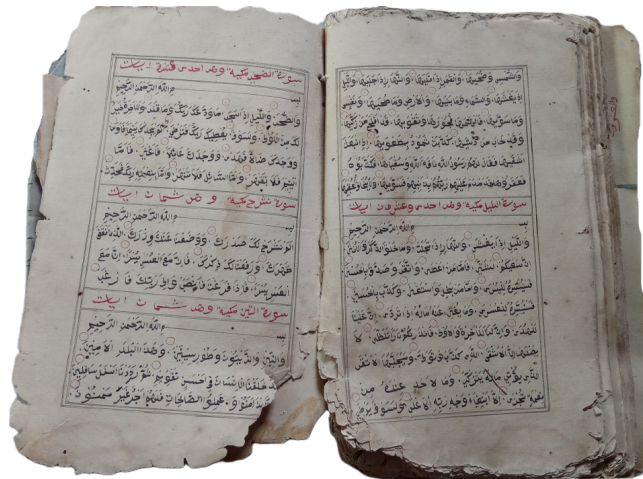 والشمس وضحيها والقمر اذا تليها والنهار اذا جليها واليل
اذا يغشيها والسماء وما بنيها والارض وما طحيها ونفس
وما سويها فالهمها فجورها وتقويها قد افلح من زكيها
وقد خاب من دسيها كذبت ثمود بطغويها اذ انبعث
اشقيها فقال لهم رسول الله ناقة الله وسقيها فكذبوه
فعقروها فدمدم عليهم ربهم بذنبهم فسويها ولا يخاف عقبها
سورة اليل مكية وهي احدى وعشرون ايات
بسم الله الرحمن الرحيم
واليل اذا يغشى والنهار اذا تجلى وما خلق الذكر والانثى
ان سعيكم لشتى فاما من اعطى واتقى وصدق بالحسنى
فسنيسره لليسرى واما من بخل واستغنى وكذب بالحسنى
فسنيسره للعسرى وما يغني عنه ماله اذا تردى ان علينا
للهدى وان لنا للاخرة والاولى فانذرتكم نارا تلظى لا
يصليها الا الاشقى الذي كذب وتولى وسيجنبها الاتقى
الذي يؤتي ماله يتزكى وما لاحد عنده من
نعمة تجزى الا ابتغاء وجه ربه الاعلى ولسوف يرضى
سورة الضحى مكية وهي احدى عشرة ايات
بسم الله الرحمن الرحيم
والضحى واليل اذا سجى ما ودعك ربك وما قلى وللاخرة خير
لك من الاولى ولسوف يعطيك ربك فترضى الم يجدك يتيما فاوى
ووجدك ضالا فهدى ووجدك عائلا فاغنى فاما
اليتيم فلا تقهر واما السائل فلا تنهر واما بنعمة ربك فحدث
سورة نشرح مكية وهي ثمان ايات
بسم الله الرحمن الرحيم
الم نشرح لك صدرك ووضعنا عنك وزرك الذي انقض
ظهرك ورفعنا لك ذكرك فان مع العسر يسرا ان مع
العسر يسرا فاذا فرغت فانصب والى ربك فارغب
سورة التين مكية وهي ثمان ايات
بسم الله الرحمن الرحيم
والتين والزيتون وطور سينين وهذا البلد الامين
خلقنا الانسان في احسن تقويم ثم رددناه اسفل سافلين
امنوا وعملوا الصالحات فلهم اجر غير ممنون